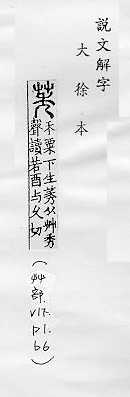 說文解字
大徐本
莠
禾粟下生莠从艸秀
聲讀若酉与久切
(艸部.
V17.
P1.
66)